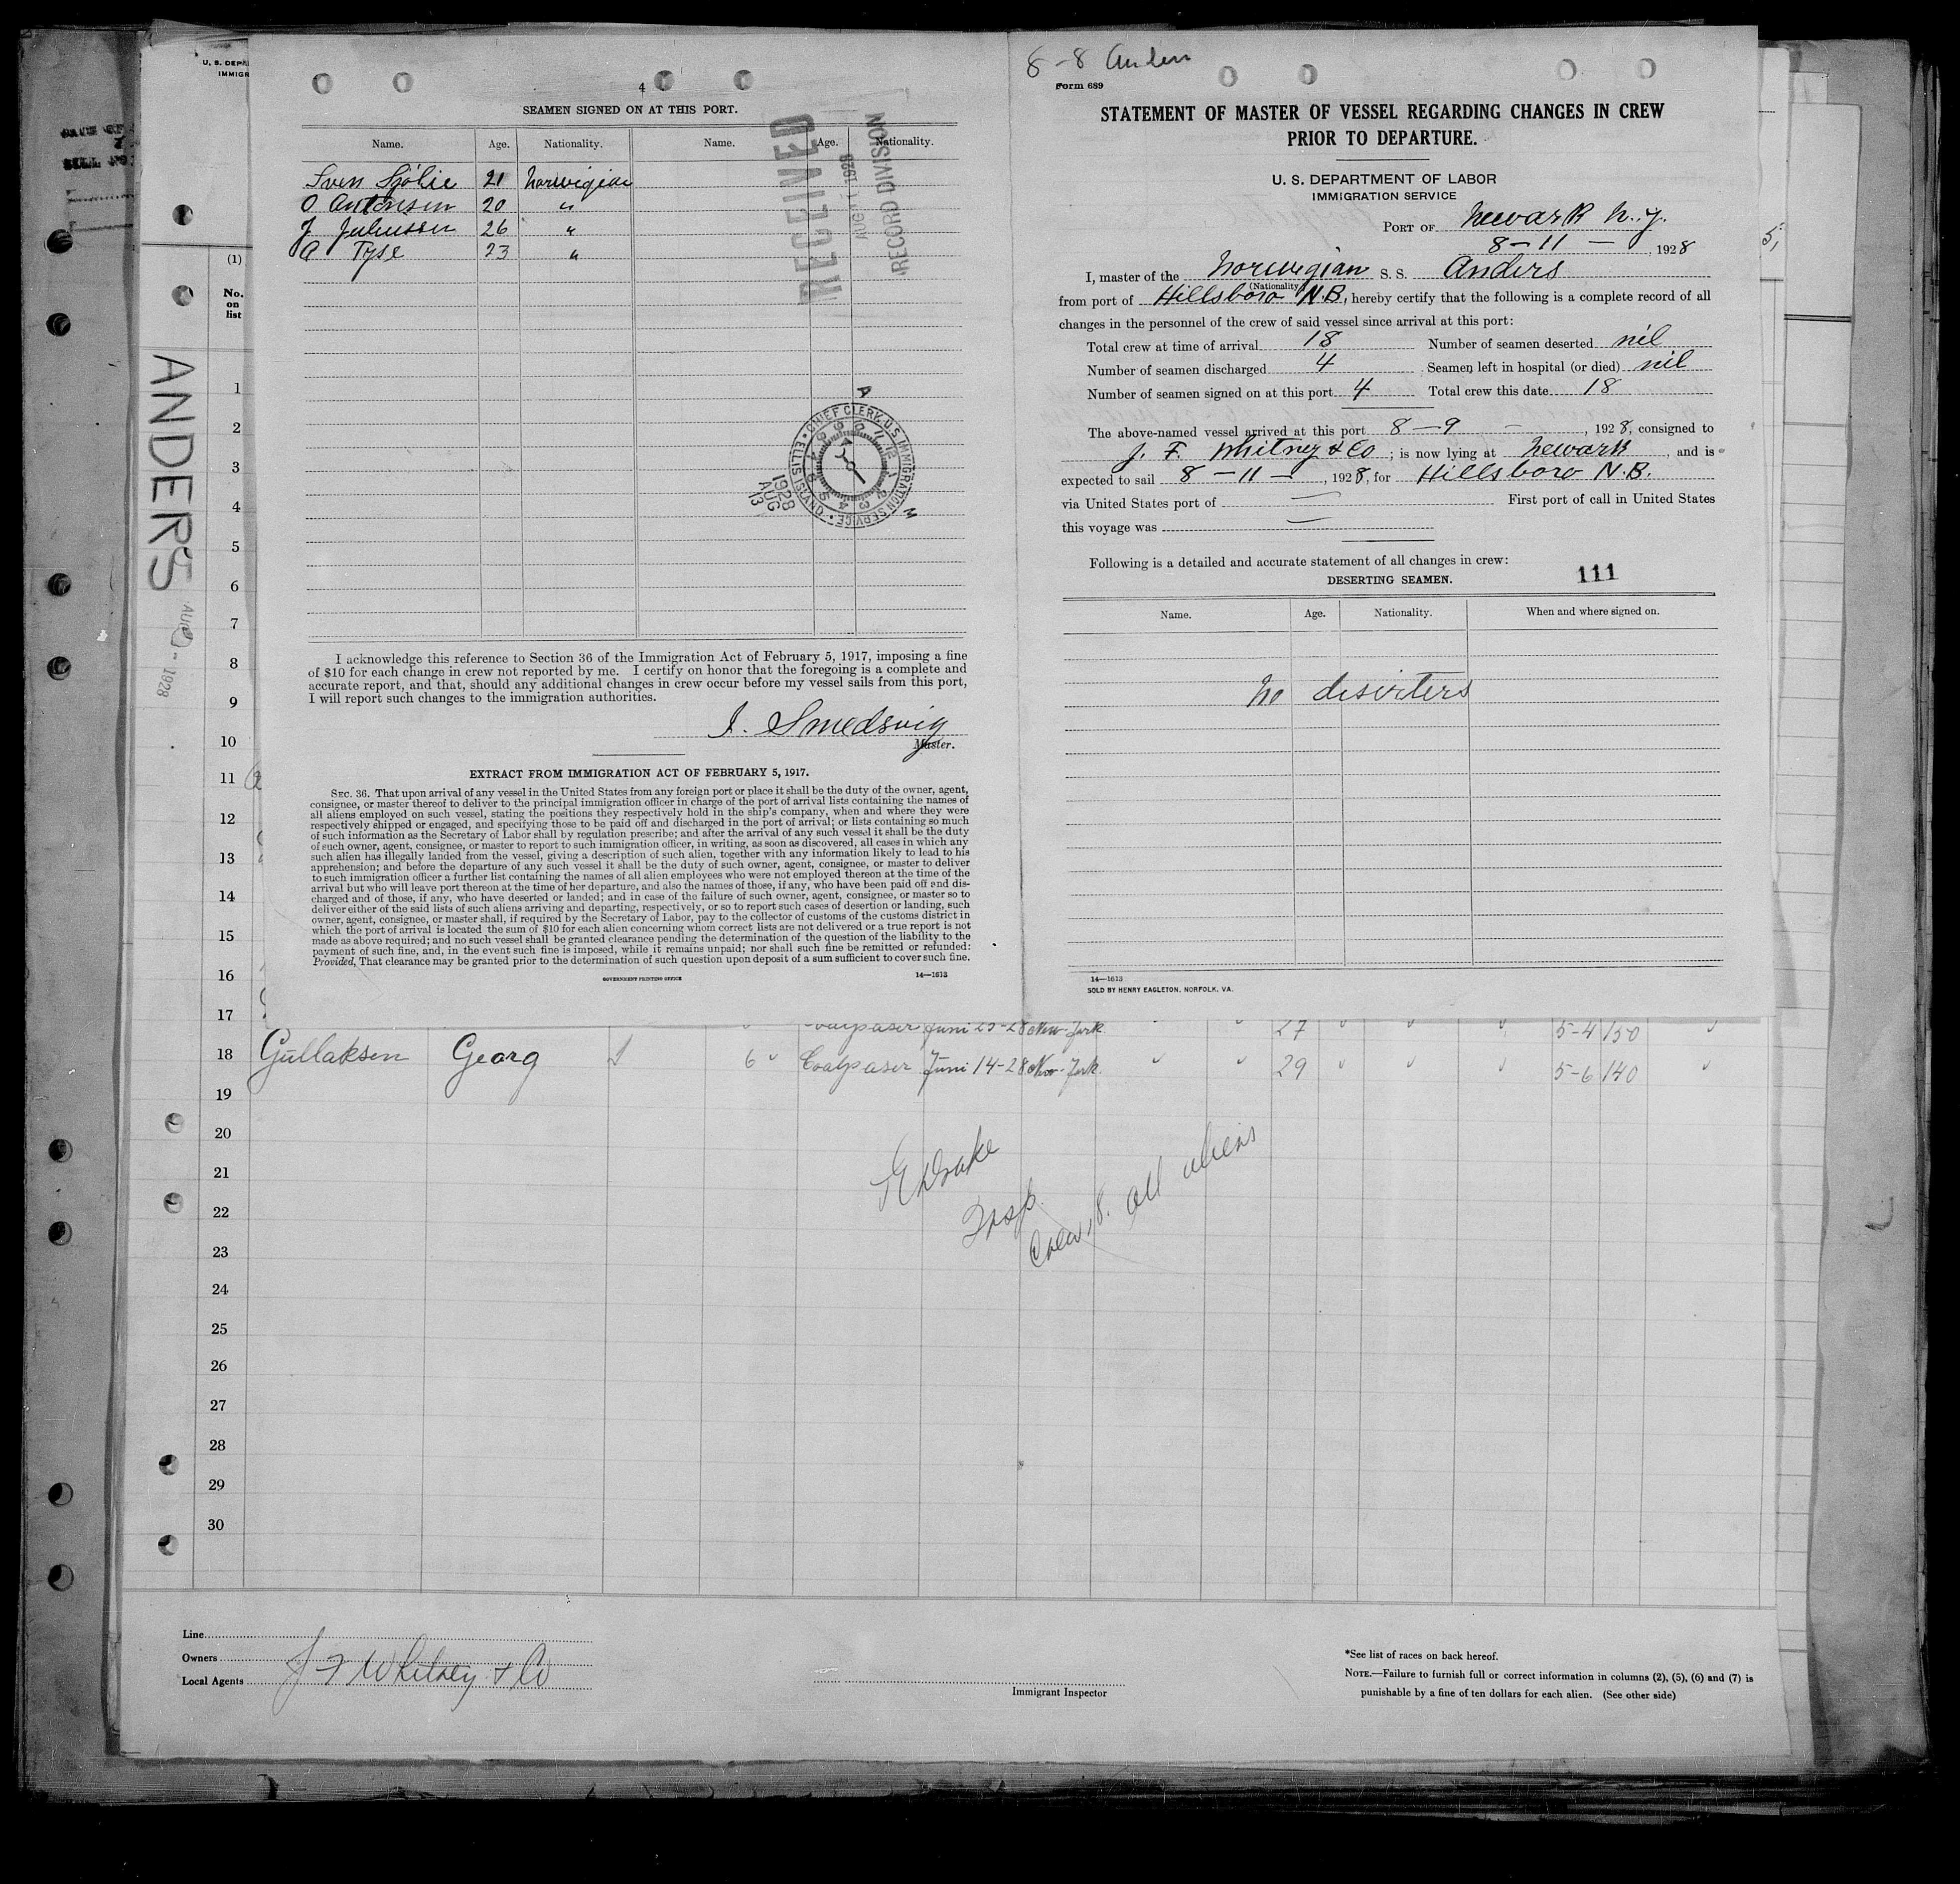 U. S. DEP
IMMIGR
(1)
No.
on
list
ANDERS
1928
4
SEAMEN SIGNED ON AT THIS PORT.
Name. Age. Nationality. Name. Age. Nationality.
Sven Sjölie 21 Norwigian
O Antonsen 20 "
J Juliussen 26 "
A Tyse 23 "
RECEIVED
AUG 11 1928
RECORD DIVISION
CHIEF CLERK, U.S. IMMIGRATION SERVICE • ELLIS ISLAND •
1928
AUG
13
A
M
I acknowledge this reference to Section 36 of the Immigration Act of February 5, 1917, imposing a fine
of $10 for each change in crew not reported by me. I certify on honor that the foregoing is a complete and
accurate report, and that, should any additional changes in crew occur before my vessel sails from this port,
I will report such changes to the immigration authorities.
I. Smedsvig
Master.
EXTRACT FROM IMMIGRATION ACT OF FEBRUARY 5, 1917.
SEC. 36. That upon arrival of any vessel in the United States from any foreign port or place it shall be the duty of the owner, agent,
consignee, or master thereof to deliver to the principal immigration officer in charge of the port of arrival lists containing the names of
all aliens employed on such vessel, stating the positions they respectively hold in the ship's company, when and where they were
respectively shipped or engaged, and specifying those to be paid off and discharged in the port of arrival; or lists containing so much
of such information as the Secretary of Labor shall by regulation prescribe; and after the arrival of any such vessel it shall be the duty
of such owner, agent, consignee, or master to report to such immigration officer, in writing, as soon as discovered, all cases in which any
such alien has illegally landed from the vessel, giving a description of such alien, together with any information likely to lead to his
apprehension; and before the departure of any such vessel it shall be the duty of such owner, agent, consignee, or master to deliver
to such immigration officer a further list containing the names of all alien employees who were not employed thereon at the time of the
arrival but who will leave port thereon at the time of her departure, and also the names of those, if any, who have been paid off and dis-
charged and of those, if any, who have deserted or landed; and in case of the failure of such owner, agent, consignee, or master so to
deliver either of the said lists of such aliens arriving and departing, respectively, or so to report such cases of desertion or landing, such
owner, agent, consignee, or master shall, if required by the Secretary of Labor, pay to the collector of customs of the customs district in
which the port of arrival is located the sum of $10 for each alien concerning whom correct lists are not delivered or a true report is not
made as above required; and no such vessel shall be granted clearance pending the determination of the question of the liability to the
payment of such fine, and, in the event such fine is imposed, while it remains unpaid; nor shall such fine be remitted or refunded:
Provided, That clearance may be granted prior to the determination of such question upon deposit of a sum sufficient to cover such fine.
GOVERNMENT PRINTING OFFICE 14—1613
8-8 Anders
Form 689
STATEMENT OF MASTER OF VESSEL REGARDING CHANGES IN CREW
PRIOR TO DEPARTURE.
U. S. DEPARTMENT OF LABOR
IMMIGRATION SERVICE
PORT OF Newark N.J.
8-11 - , 1928
I, master of the Norwegian S. S. Anders
(Nationality)
from port of Hillsboro N.B, hereby certify that the following is a complete record of all
changes in the personnel of the crew of said vessel since arrival at this port:
Total crew at time of arrival 18 Number of seamen deserted nil
Number of seamen discharged 4 Seamen left in hospital (or died) nil
Number of seamen signed on at this port 4 Total crew this date 18
The above-named vessel arrived at this port 8-9 - , 1928, consigned to
J. F. Whitney & Co ; is now lying at Newark , and is
expected to sail 8-11- , 1928, for Hillsboro N.B.
via United States port of — First port of call in United States
this voyage was —
Following is a detailed and accurate statement of all changes in crew:
DESERTING SEAMEN. 111
Name. Age. Nationality. When and where signed on.
No deserters
14—1613
SOLD BY HENRY EAGLETON, NORFOLK, VA.
1
2
3
4
5
6
7
8
9
10
11
12
13
14
15
16
17 Coalpaser Juni 25-28 New-Jork 27 5-4 150
18 Gullaksen Georg 1 6 Coalpaser Juni 14-28 New-Jork 29 5-6 140
19
20
21
22
23
24
25
26
27
28
29
30
Drake
Insp
Crew 18. all aliens
Line
Owners
Local Agents J F Whitney & Co
Immigrant Inspector
*See list of races on back hereof.
NOTE.—Failure to furnish full or correct information in columns (2), (5), (6) and (7) is
punishable by a fine of ten dollars for each alien. (See other side)